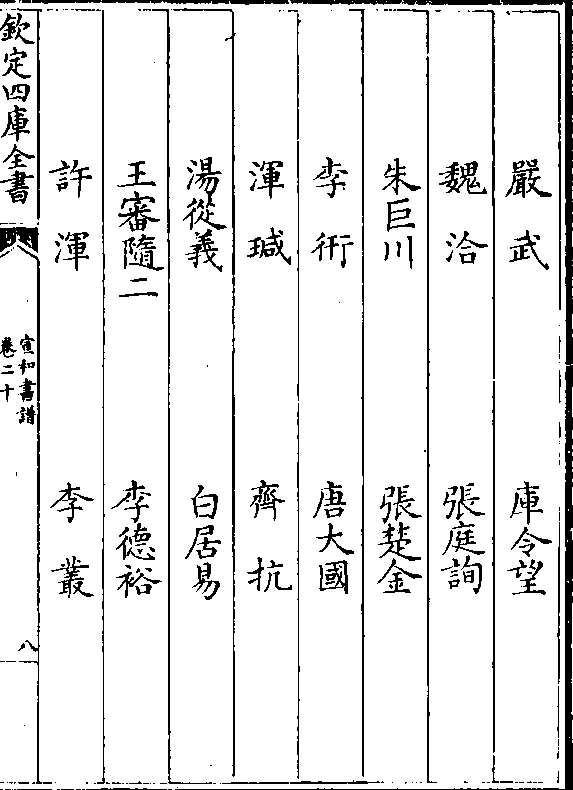 嚴武　庫令望
魏洽　張庭詢
朱巨川　張楚金
李衎　唐大國
渾瑊　齊抗
湯從義　白居易
王審隨二　李德裕
許渾　李叢
欽定四庫全書
宣和書譜
卷二十
八